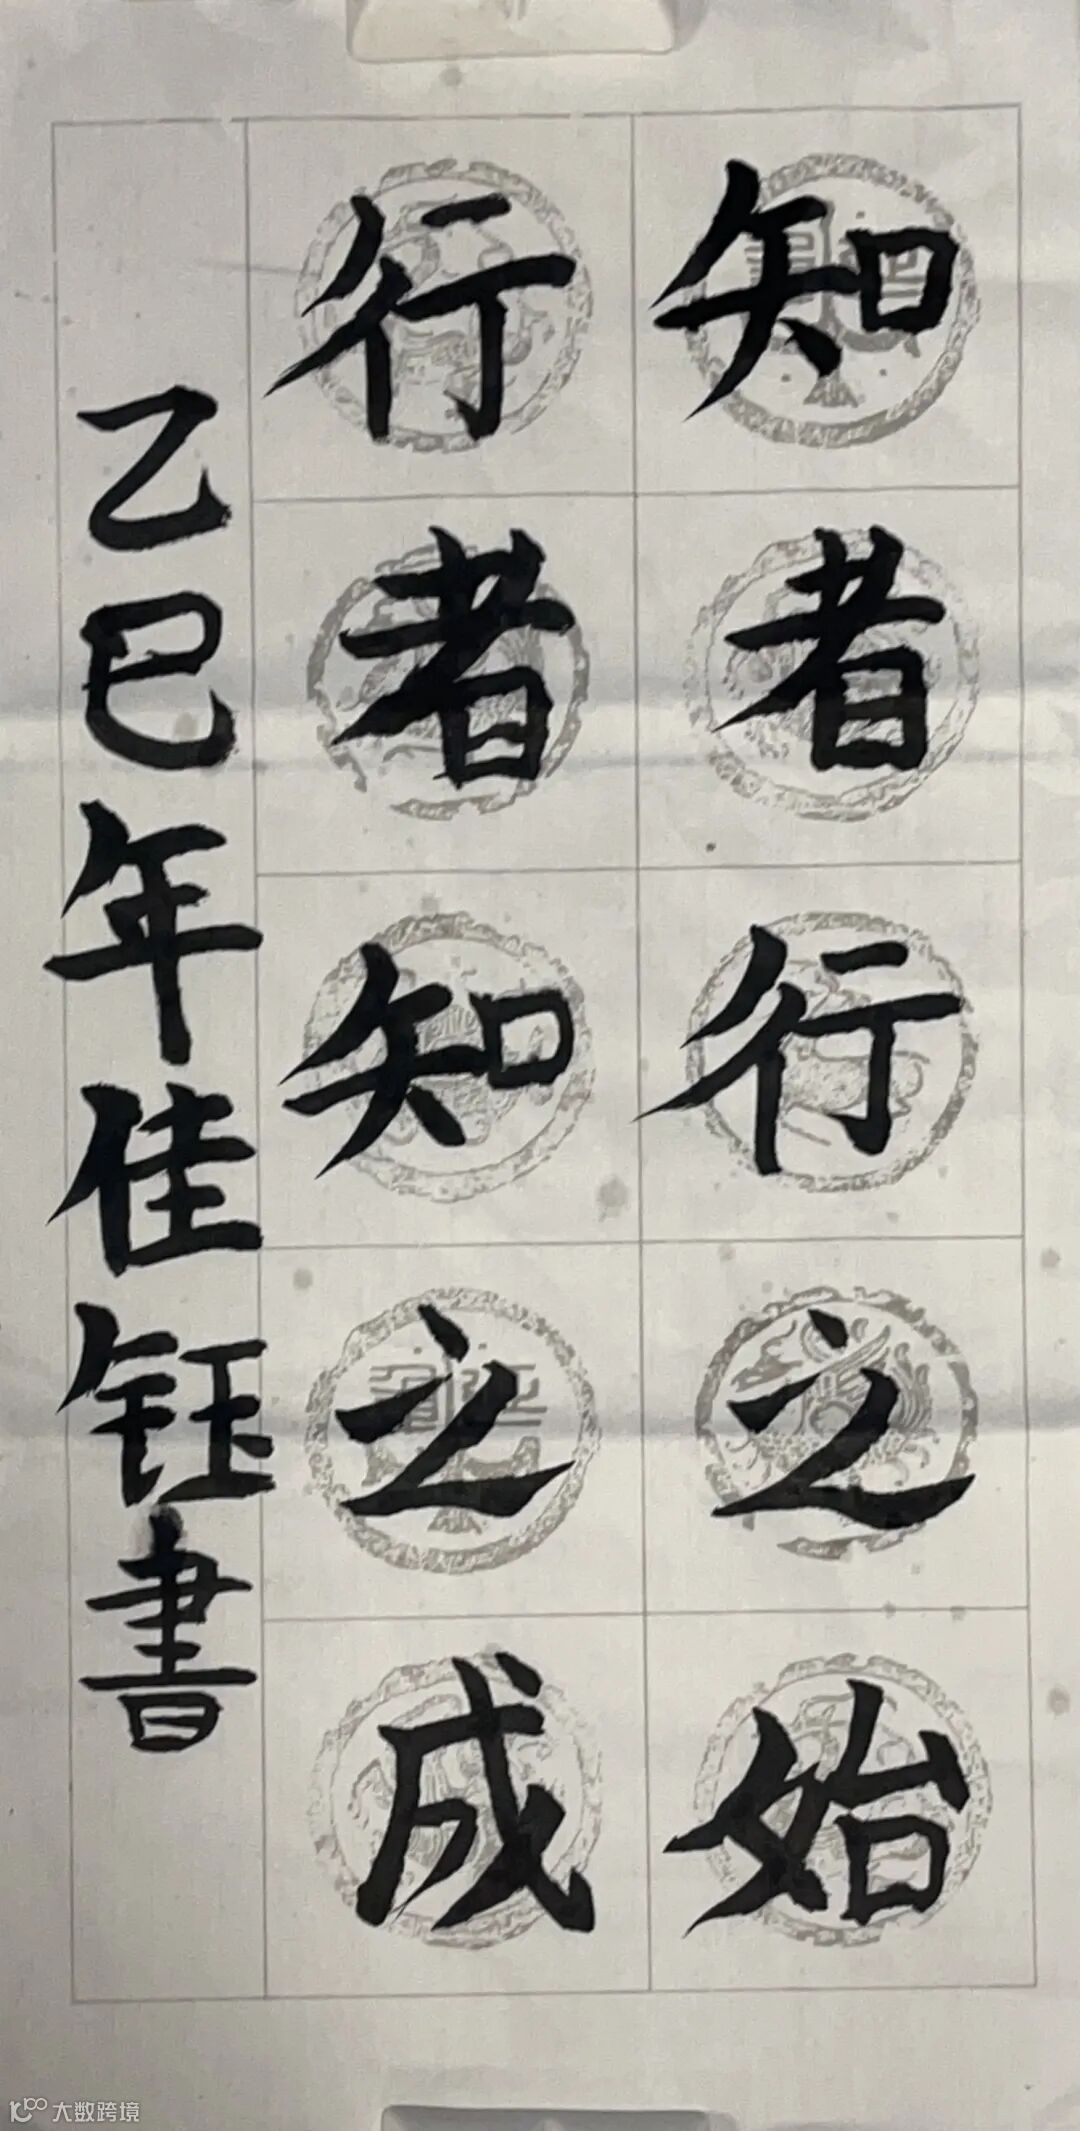 知者行之始
行者知之成
乙巳年佳钰書
大数跨境